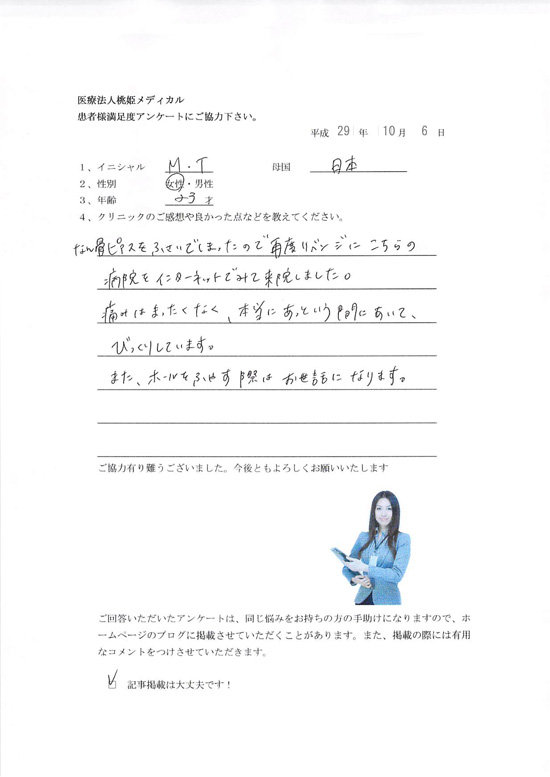 医療法人桃姫メディカル
患者様満足度アンケートにご協力下さい。
平成 29 年 10 月 6 日
1、イニシャル M・T 母国 日本
2、性別 女性・男性
3、年齢 23 才
4、クリニックのご感想や良かった点などを教えてください。
なん骨ピアスをふさいでしまったので再度リベンジにこちらの
病院をインターネットでみて来院しました。
痛みはまったくなく、本当にあっという間にあいて、
びっくりしています。
また、ホールをふやす際はお世話になります。
ご協力有り難うございました。今後ともよろしくお願いいたします
ご回答いただいたアンケートは、同じ悩みをお持ちの方の手助けになりますので、ホ
ームページのブログに掲載させていただくことがあります。また、掲載の際には有用
なコメントをつけさせていただきます。
記事掲載は大丈夫です！